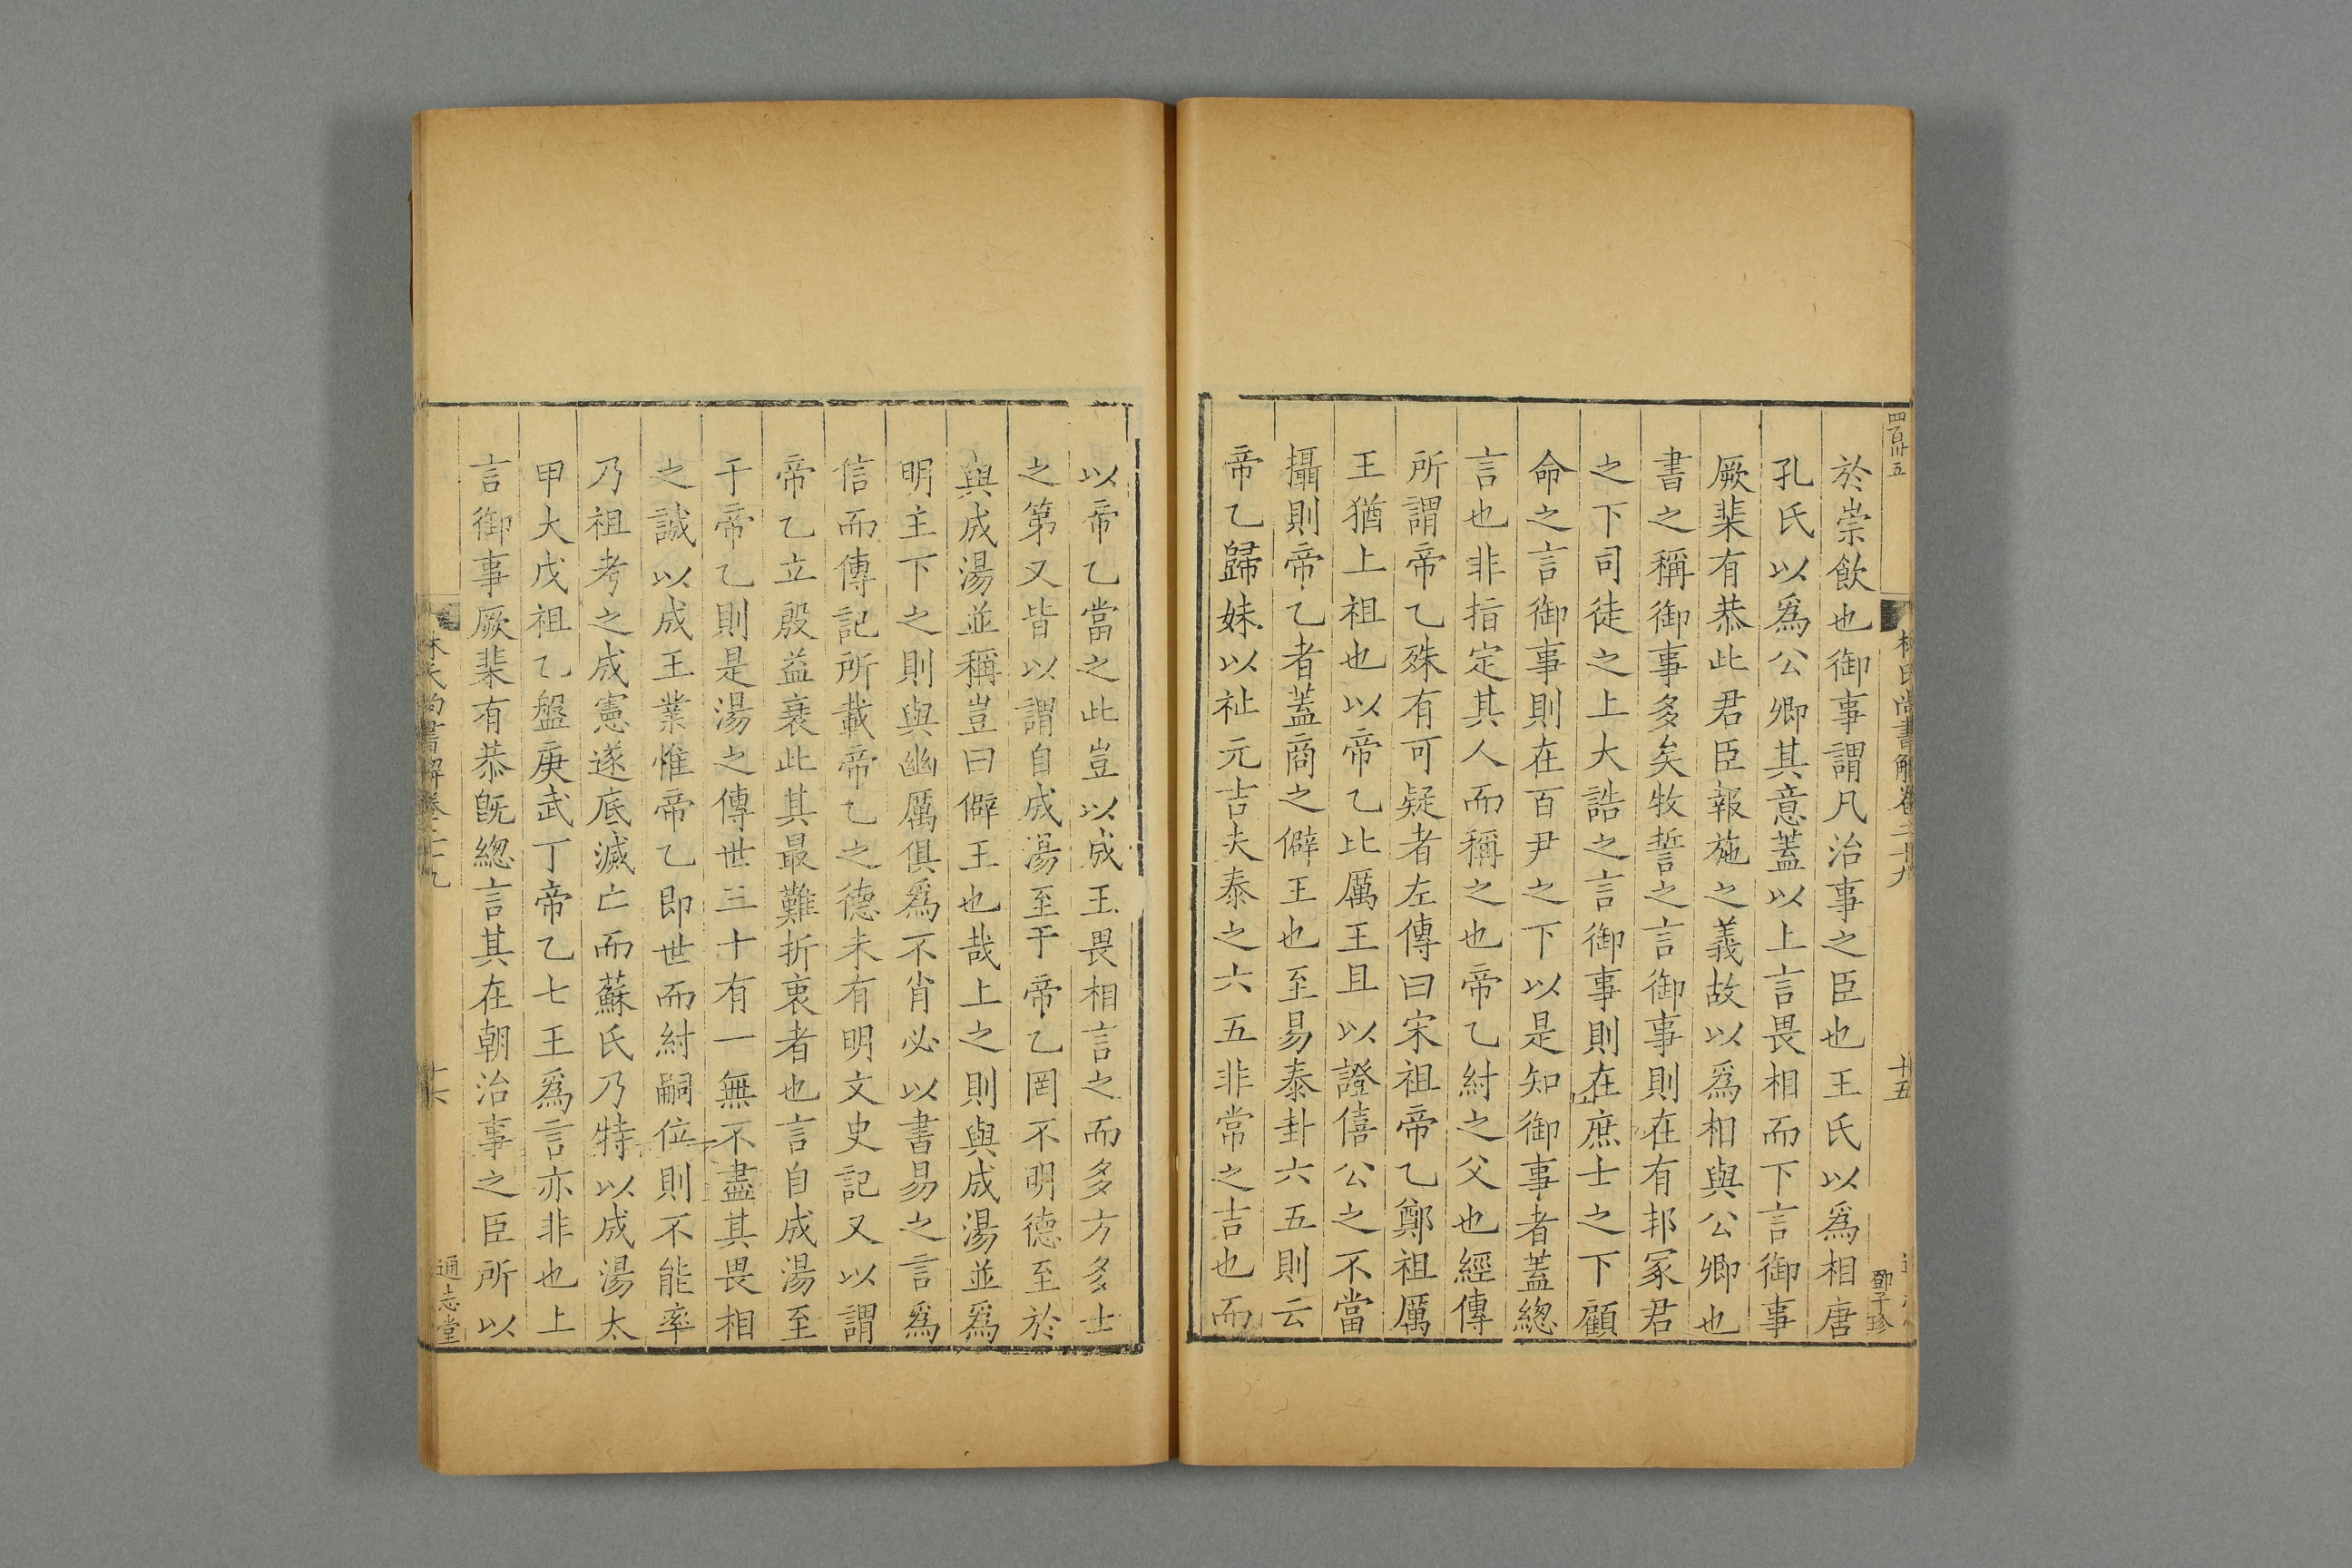 四百卅五
林氏尚書解卷二十九
十五
鄧子珍
於崇飲也御事謂凡治事之臣也王氏以爲相唐
孔氏以爲公卿其意蓋以上言畏相而下言御事
厥棐有恭此君臣報施之義故以爲相與公卿也
書之稱御事多矣牧誓之言御事則在有邦冢君
之下司徒之上大誥之言御事則在庶士之下顧
命之言御事則在百尹之下以是知御事者蓋總
言也非指定其人而稱之也帝乙紂之父也經傳
所謂帝乙殊有可疑者左傳曰宋祖帝乙鄭祖厲
王猶上祖也以帝乙比厲王且以證僖公之不當
攝則帝乙者蓋商之僻王也至易泰卦六五則云
帝乙歸妹以祉元吉夫泰之六五非常之吉也而
以帝乙當之此豈以成王畏相言之而多方多士
之第又皆以謂自成湯至于帝乙罔不明德至於
與成湯並稱豈曰僻王也哉上之則與成湯並爲
明主下之則與幽厲俱爲不肖必以書易之言爲
信而傳記所載帝乙之德未有明文史記又以謂
帝乙立殷益衰此其最難折衷者也言自成湯至
于帝乙則是湯之傳世三十有一無不盡其畏相
之誠以成王業惟帝乙即世而紂嗣位則不能率
乃祖考之成憲遂底滅亡而蘇氏乃特以成湯太
甲大戊祖乙盤庚武丁帝乙七王爲言亦非也上
言御事厥棐有恭旣總言其在朝治事之臣所以
林氏尚書解卷二十九
十六
通志堂